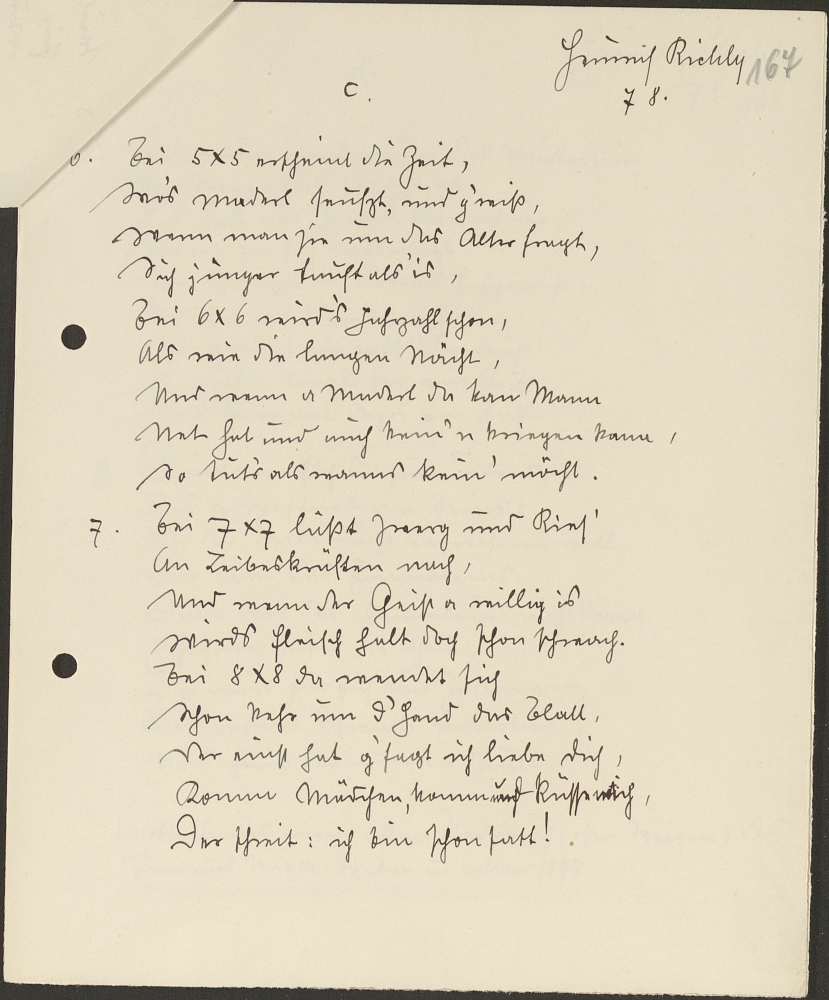 Heinrich Richly 167
C. 78.
6. Bei 5x5 erscheint die Zeit,
Wo's Maderl seufzt, und g'wiß,
Wenn man sie um das Alter fragt,
Sich jünger tauft als 's is,
Bei 6x6 wird's Jahrzahl schon,
Als wie die langen Nächt,
Und wenn a Maderl da kan Mann
Net hat und auch kein'n kriegen kann,
So tut's als wanns kein' möcht.
7. Bei 7x7 läßt Zwerg und Ries'
An Leibeskräften nach,
Und wenn der Geist a willig is
Wirds Fleisch halt doch schon schwach.
Bei 8x8 da wendet sich
Schon kehr um d'Hand das Blatt,
Der einst hat g'sagt ich liebe dich,
Komm Mädchen, komm und küsse mich,
Der schreit: ich bin schon satt!